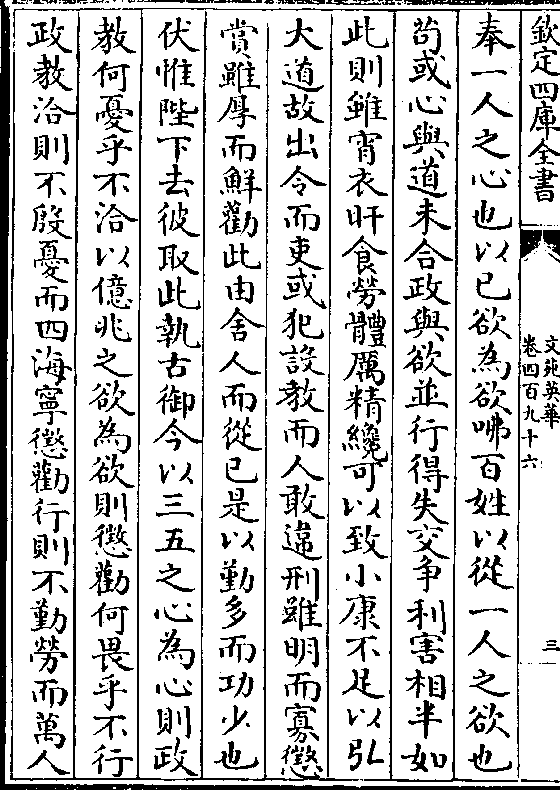 欽定四庫全書
文苑英華
卷四百九十六
三
奉一人之心也以已欲為欲咈百姓以從一人之欲也
茍或心與道未合政與欲並行得失交争利害相半如
此則雖宵衣旰食勞體厲精纔可以致小康不足以弘
大道故出令而吏或犯設教而人敢違刑雖明而寡懲
賞雖厚而鮮勸此由舍人而從已是以勤多而功少也
伏惟陛下去彼取此執古御今以三五之心為心則政
教何憂乎不洽以億兆之欲為欲則懲勸何畏乎不行
政教洽則不殷憂而四海寧懲勸行則不勤勞而萬人